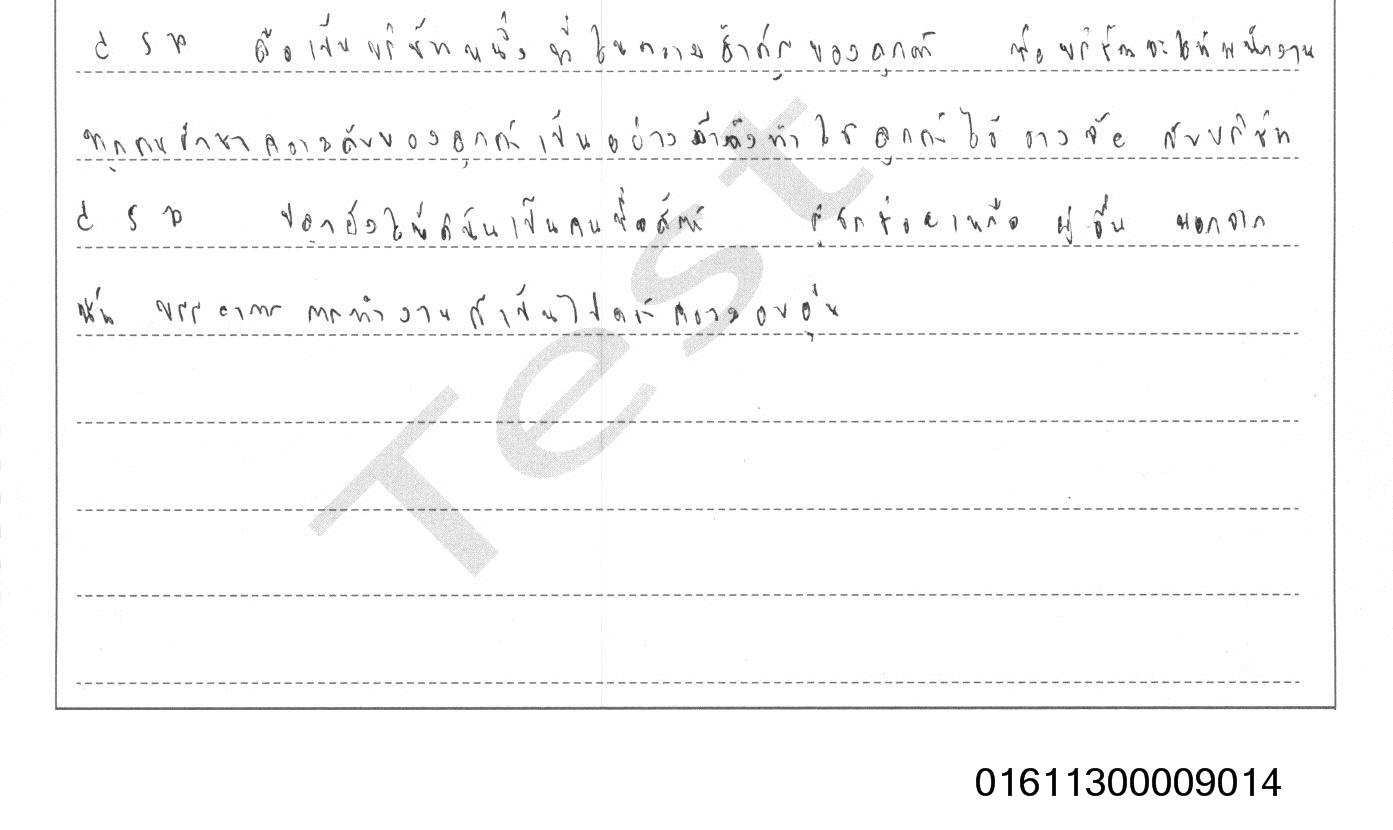 CSR ถือเป็นบริษัทหนึ่งที่ให้ความสำคัญของลูกค้า คือบริษัทจะให้พนักงาน
ทุกคนรักษาความลับของลูกค้าเป็นอย่างดี ทำให้ลูกค้าไว้วางใจ กับบริษัท
CSR ปลูกฝังให้ดิฉันเป็นคนซื่อสัตย์ รู้จักช่วยเหลือ ผู้อื่น นอกจาก
นั้น บรรยากาศ การทำงานก็เป็นไปด้วยความอบอุ่น
Test
01611300009014